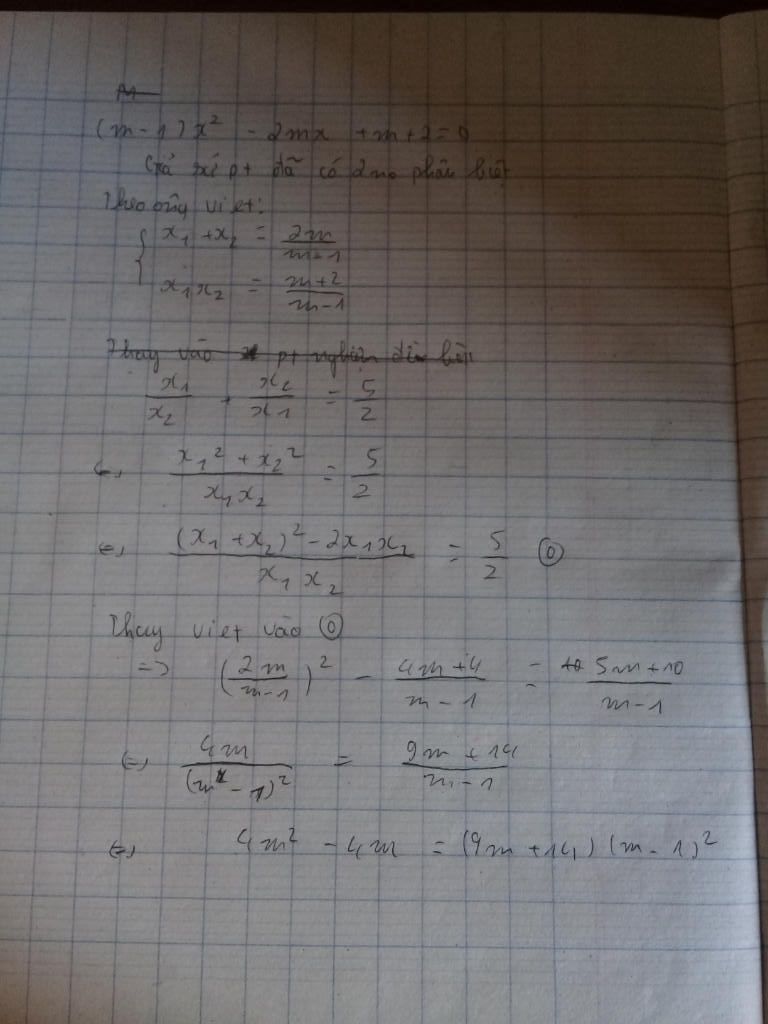 (m-1)x² - 2mx + m+2=0
Giả sử pt đã có 2 no phân biệt
Theo viet:
{ x₁ + x₂ = 2m/(m-1)
x₁x₂ = (m+2)/(m-1)
Thay vào pt nghiệm
x₁/x₂ + x₂/x₁ = 5/2
<=> (x₁² + x₂²)/(x₁x₂) = 5/2
<=> ((x₁ + x₂)² - 2x₁x₂)/(x₁x₂) = 5/2 ⓪
Thay viet vào ⓪
=> (2m/(m-1))² - (4m+4)/(m-1) = (5m+10)/(m-1)
<=> 4m/(m-1)² = (9m+14)/(m-1)
<=> 4m² - 4m = (9m+14)(m-1)²